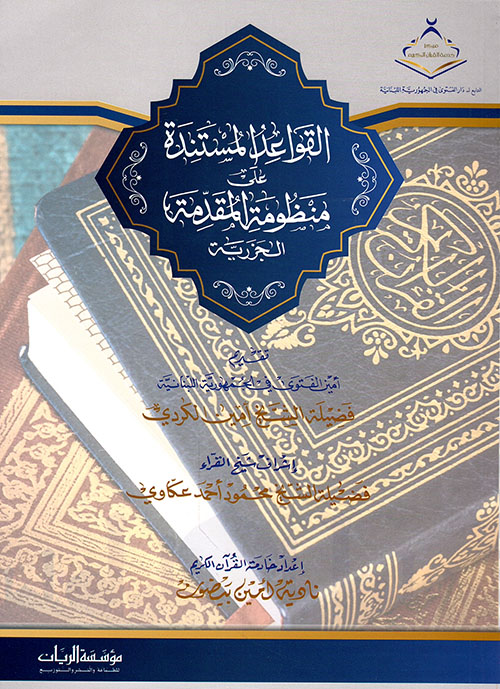 مركز
خدمة القرآن الكريم
التابع لـ دار الفتوى في الجمهورية اللبنانية
القواعد المستندة
على
منظومة المقدّمة
الجزرية
تقديم
أمين الفتوى في الجمهورية اللبنانية
فضيلة الشيخ أمين الكردي
إشراف شيخ القراء
فضيلة الشيخ محمود أحمد عكاوي
إعداد خادمة القرآن الكريم
نادية أمين بيضون
مؤسسة الريان
للطباعة والنشر والتوزيع